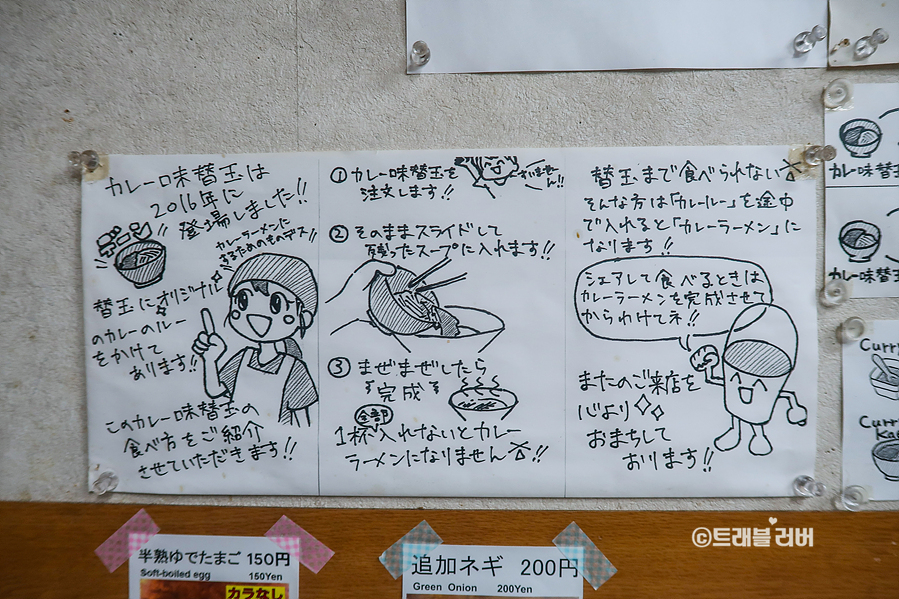 カレー味替玉は
2016年に
登場しました!!
カレーラーメンに
するためのものデス!!
替玉にオリジナル
のカレーのルー
をかけて
あります!!
このカレー味替玉の
食べ方をご紹介
させていただきます!!
① カレー味替玉を
注文します!!
すいませーん!!
② そのままスライドして
残ったスープに入れます!!
③ まぜまぜしたら
完成
全部
1杯入れないとカレー
ラーメンになりません!!
替玉まで食べられない
そんな方は「カレールー」を途中
で入れると「カレーラーメン」に
なります!!
シェアして食べるときは
カレーラーメンを完成させて
からわけてネ!!
またのご来店を
心より
おまちして
おります!!
カレー味替玉
カレー味替玉
Curry
Curry
半熟ゆでたまご 150円
Soft-boiled egg 150Yen
カラなし
追加ネギ 200円
Green Onion 200Yen
©트래블러버